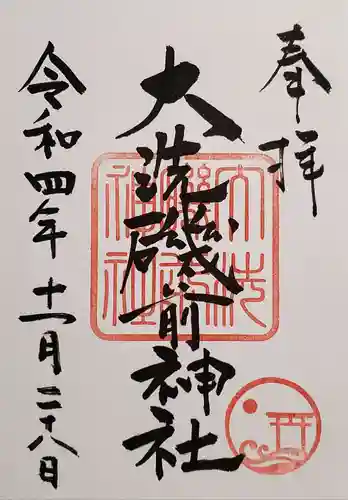 奉拝
大洗磯前神社
令和四年十一月二十八日
大洗
磯前
神社